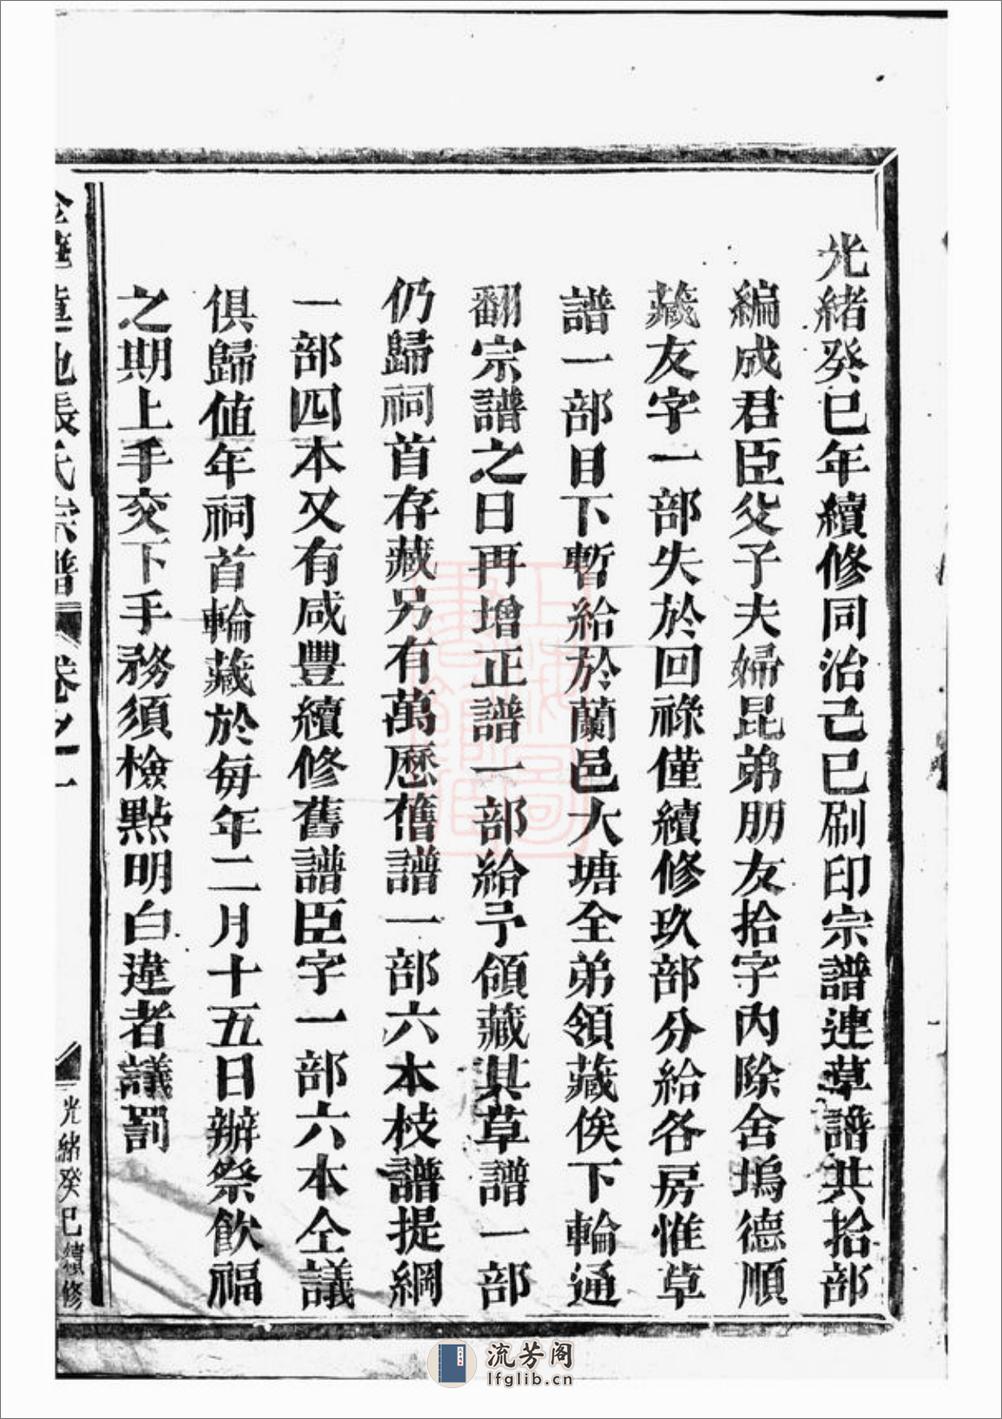 光緒癸巳年續修同治己巳刷印宗譜連草譜共拾部
編成君臣父子夫婦昆弟朋友拾字內除舍塢德順
藏友字一部失於回祿僅續修玖部分給各房惟草
譜一部目下暫給於蘭邑大塘全弟領藏俟下輪通
翻宗譜之日再增正譜一部給予領藏其草譜一部
仍歸祠首存藏另有萬歷舊譜一部六本枝譜提綱
一部四本又有咸豐續修舊譜臣字一部六本仝議
俱歸值年祠首輪藏於每年二月十五日辦祭飲福
之期上手交下手務須檢點明白違者議罰
張氏宗譜 卷之一
光緒癸巳續修
上海圖書館藏
流芳阁
lfglib.cn